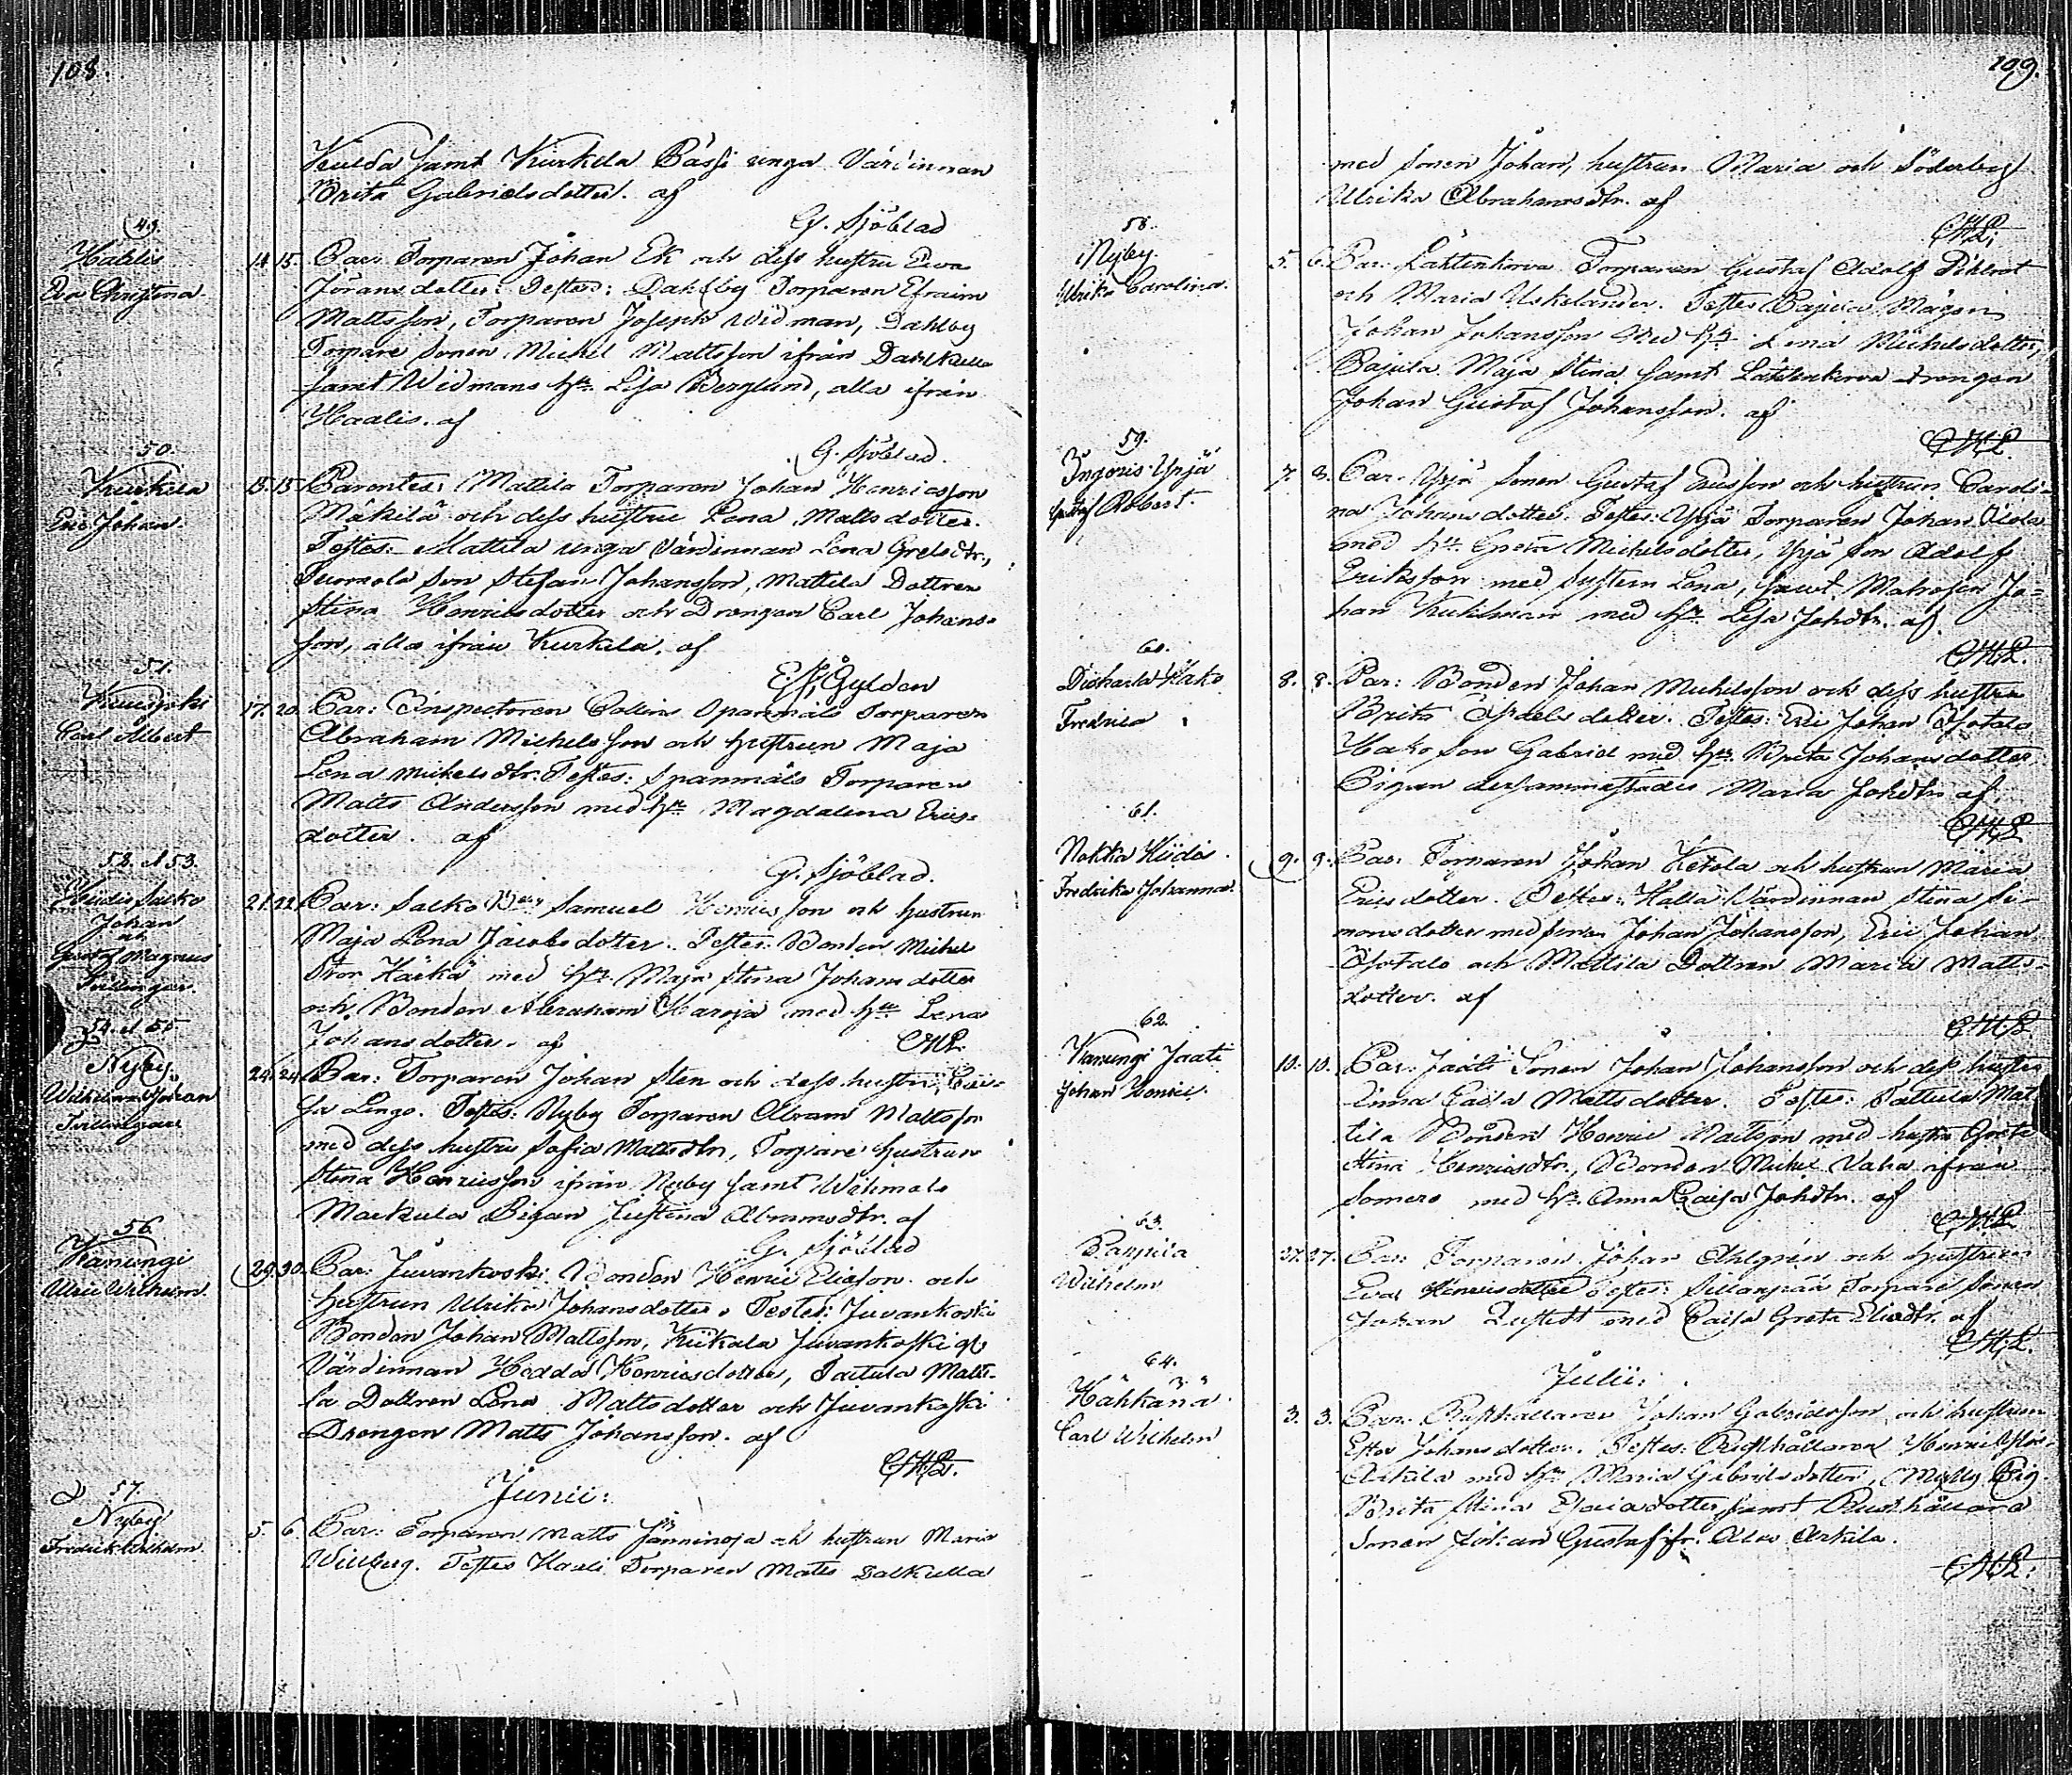 108.
Keulda samt Kurkela Bässi unga Värdinnan
Brita Gabrielsdotter. af
G. Sjöblad
49.
Haalis
Eva Christina.
14. 15. Par. Torparen Johan Ek och dess hustru Eva
Jörans dotter. Testes: Dahlby Torparen Efraim
Mattsson, Torparen Joseph Widman, Dahlby
Torpare sonen Michel Mattsson ifrån Dahlkulla
samt Widmans hu. Lisa Berglund, alla ifrån
Haalis. af
G. Sjöblad.
50.
Kurkela
Eric Johan.
13. 15. Parentes: Mattila Torparen Johan Henricsson
Mäkilä och dess hustru Lena Mattsdotter.
Testes: Mattila unga Värdinnan Lena Gretsdtr.,
Tuomola Son Stefan Johansson, Mattila Dottren
Stina Henricsdotter och Drengen Carl Johans-
son, alla ifrån Kurkela. af
E. J. Gylden
51.
Kuusjoki
Carl Albert
17. 20. Par: Inspectoren Collin Spanmåls Torparen
Abraham Michelsson och hustrun Maja
Lena Michelsdtr. Testes: Spanmåls Torparen
Matts Andersson med hu Magdalena Erics-
dotter. af
G. Sjöblad.
52. et 53.
Hiidis Salko
Johan
et
Gustaf Magnus
Tvillingar.
21. 22. Par: Salko Samuel Henricsson och hustrun
Maja Lena Jacobsdotter. Testes: Bonden Michel
Stor Härkä med hu. Maja Stina Johansdotter
och Bonden Abraham Haroja med hu Lena
Johansdotter. af
CHL.
54. et 55
Nyby.
Wilhelm Johan
Tvillingar
24. 24. Par: Torparen Johan Sten och dess hustru Cai-
sa Lingo. Testes: Nyby Torparen Abram Mattsson
med dess hustru Sofia Mattsdtr, Torpare hustrun
Stina Henricsson ifrån Nyby samt Wähmalo
Markula Pigan Justina Abramsdtr. af
G. Sjöblad
56
Kanungi
Ulric Wilhelm.
29. 30. Par: Juvankoski Bonden Henric Eliasson och
hustrun Ulrika Johansdotter. Testes: Juvankoski
Bonden Johan Mattsson, Kiikala Juvankoski
Värdinnan Hedda Henricsdotter, Taitula Matti-
la Dottren Lena Mattsdotter och Juvankoski
Drengen Matts Johansson. af
CHL.
Junii:
57.
Nyby
Fredrik Wilhelm.
5. 6. Par: Torparen Matts Jänninoja och hustrun Maria
Willberg. Testes Haali Torparen Matts Dalkulla
109.
med sonen Johan, hustrun Maria och Söderberg
Ulrika Abrahamsdtr. af
CHL.
58.
Nyby.
Ulrika Carolina.
5. 6. Par: Lättenkorva Torparen Gustaf Adolf
och Maria Uskelander. Testes Pajula Mågen
Johan Johansson med hu Lena Michelsdotter,
Pajula Maja Stina samt Lättenkorva drengen
Johan Gustaf Johansson. af
CHL.
59.
Ingeris Yrjä
Gustaf Robert.
7. 8. Par. Yrjä Sonen Gustaf Ericsson och hustrun Caroli-
na Johansdotter. Testes: Yrjä Torparen Johan
med hu. Greta Michelsdotter, Yrjä son Adolf
Eriksson med systern Lena, samt Matrosen Jo-
han Kuhlman med hu. Lisa Johdtr. af
CHL.
60.
Diskarla Hako
Fredrica
8. 8. Par: Bonden Johan Michelsson och dess hustru
Brita Axelsdotter. Testes: Eric Johan Ojotalo
Hako son Gabriel med hu. Brita Johansdotter
Pigan dersammastädes Maria Johdtr af.
CHL
61.
Nokka Hiidis.
Fredrika Johanna.
9. 9. Par: Torparen Johan Ketola och hustrun Maria
Ericsdotter. Testes: Halla Värdinnan Stina Si-
monsdotter med sonen Johan Johansson, Eric Johan
Ojotalo och Mattila Dottren Maria Matts-
dotter. af
CHL
62.
Kanungi Jaati
Johan Henric.
10. 10. Par: Jaati Sonen Johan Johansson och dess hustru
Anna Caisa Mattsdotter. Testes: Taitula Mat
tila Bonden Henric Mattsson med hustru Greta
Stina Henricsdtr., Bonden Michel Vaha ifrån
Somero med hu. Anna Caisa Johdtr. af
CHL
63.
Pappila
Wilhelm
27. 27. Par: Torparen Johan Ahlgrén och hustrun
Eva Henricsdotter Testes: Sillanpää Torpare sonen
Johan med Caisa Greta Eliedtr. af
CHL.
Julii:
64.
Hähkänä.
Carl Wilhelm
3. 3. Par: Rusthållaren Johan Gabrielsson och hustrun
Ester Johansdotter. Testes: Rusthållaren Henric
Arkila med hu Maria Gabrielsdotter, Pig.
Brita Stina Esaiasdotter samt Rusthållare
Sonen Johan Gustaf fr. Arkila.
CHL.